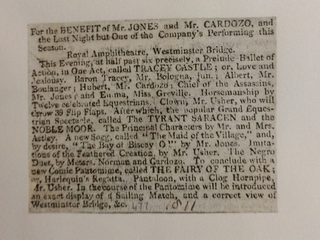 For the BENEFIT of Mr. JONES and Mr. CARDOZO, and
the Last Night but One of the Company's Performing this
Season.
Royal Amphitheatre, Westminster Bridge.
This Evening, at half past six precisely, a Prelude Ballet of
Action, in One Act, called TRACEY CASTLE; or, Love and
Jealousy. Baron Tracey, Mr. Bologna, jun.; Albert, Mr.
Boulanger; Hubert, Mr. Cardozo; Chief of the Assassins,
Mr. Jones; and Emma, Miss Greville. Horsemanship by
Twelve celebrated Equestrians. Clown, Mr. Usher, who will
throw 30 Flip Flaps. After which, the popular Grand Eques-
trian Spectacle, called The TYRANT SARACEN and the
NOBLE MOOR. The Principal Characters by Mr. and Mrs.
Astley. A new Song, called "The Maid of the Village," and,
by desire, "The Bay of Biscay O!" by Mr. Jones. Imita-
tions of the Feathered Creation, by Mr. Usher. The Negro
Duet, by Messrs. Norman and Cardozo. To conclude with a
new Comic Pantomime, called THE FAIRY OF THE OAK;
or, Harlequin's Regatta. Pantaloon, with a Clog Hornpipe,
Mr. Usher. In the course of the Pantomime will be introduced
an exact display of a Sailing Match, and a correct view of
Westminster Bridge, &c. 1811